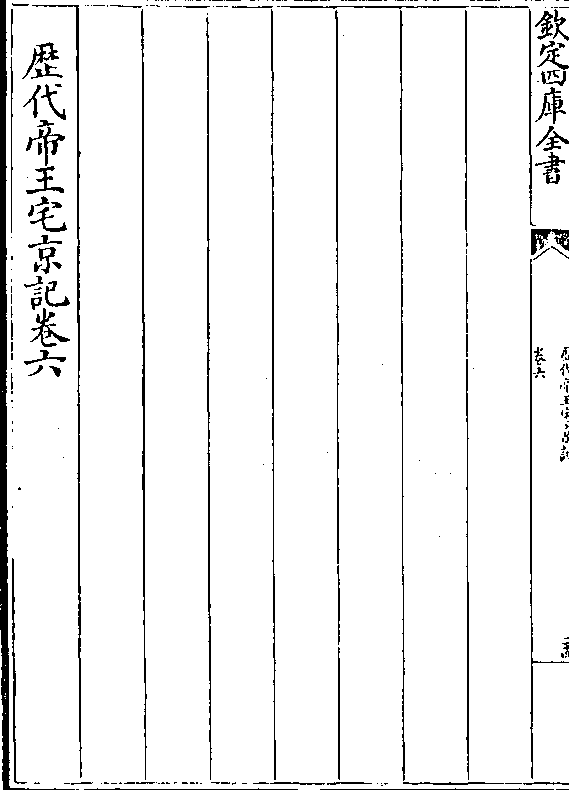 欽定四庫全書
歴代帝王宅京記
卷六
歴代帝王宅京記卷六